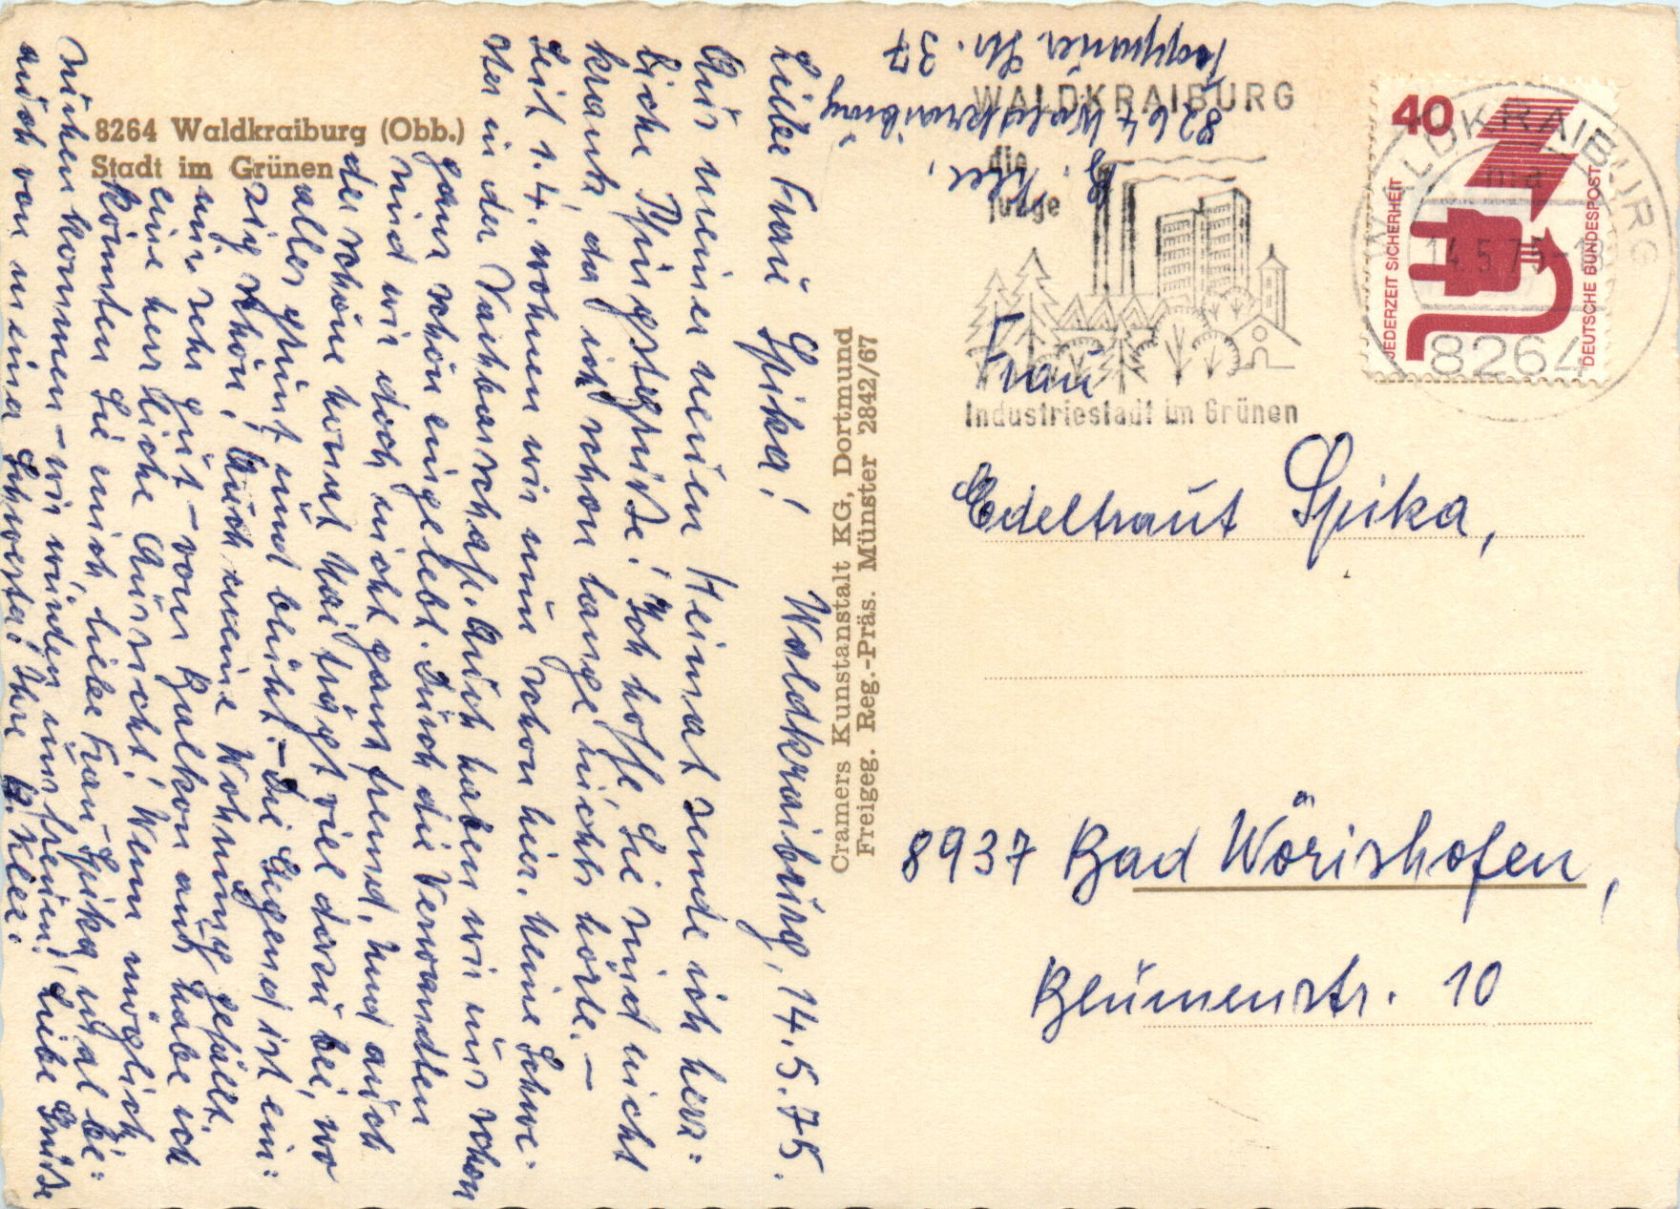 8264 Waldkraiburg (Obb.)
Stadt im Grünen
Waldkraiburg, 14.5.75.
Liebe Frau Spika!
Aus meiner neuen Heimat sende ich herz=
liche Pfingstgrüße! Ich hoffe, Sie sind nicht
krank, da ich schon lange nichts hörte. –
Seit 1.4. wohnen wir nun schon hier. Meine Schwe-
ster in der Nachbarschaft. Auch haben wir uns schon
ganz schön eingelebt. Durch die Verwandten
sind wir doch nicht ganz fremd. Und auch
der schöne Monat Mai trägt viel dazu bei, wo
alles grünt und blüht. – Die Gegend ist ein:
zig schön! Auch meine Wohnung gefällt
mir sehr gut – vom Balkon aus habe ich
eine herrliche Aussicht! Wenn möglich
könnten Sie mich, liebe Frau Spika, mal be=
suchen kommen – wir würden uns freuen! Liebe Grüße
auch von meiner Schwester! Ihre H. Klee.
Cramers Kunstanstalt KG, Dortmund
Freigeg. Reg.-Präs. Münster 2842/67
Klee,
8264 Waldkraiburg
Troppauer Str. 37
WALDKRAIBURG
die
junge
Industriestadt im Grünen
40
JEDERZEIT SICHERHEIT
DEUTSCHE BUNDESPOST
WALDKRAIBURG
14.5.75-18
8264
Frau
Edeltraut Spika,
8937 Bad Wörishofen,
Blumenstr. 10